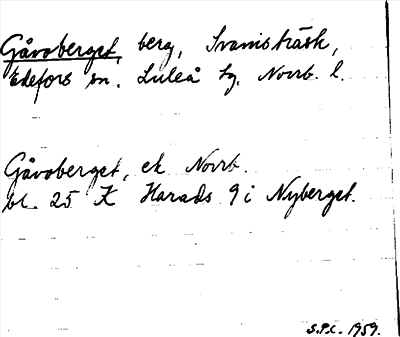 Gåvoberget, berg, Svanisträsk,
Edefors sn. Luleå tg. Norrb. l.
Gåvoberget, ek Norrb.
bl. 25 K Harads 9 i Nyberget.
S.P.C. 1959.